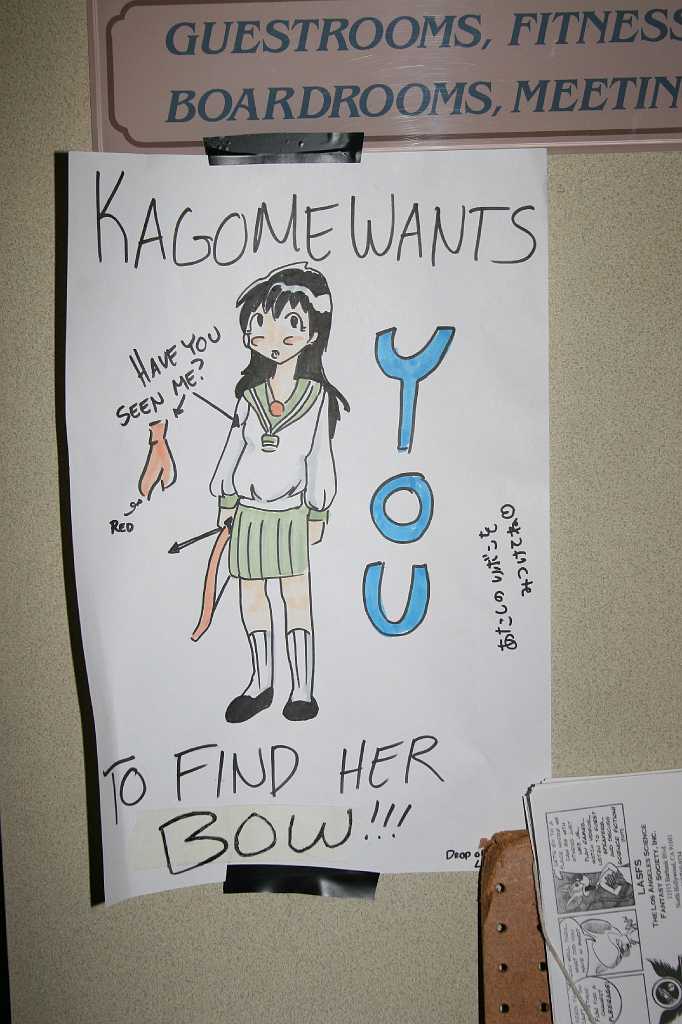 GUESTROOMS, FITNESS
BOARDROOMS, MEETIN
KAGOME WANTS
HAVE YOU
SEEN ME?
RED
YOU
あたしのリボンを
みつけてね
TO FIND HER
BOW!!!
DROP O
LASFS
THE LOS ANGELES SCIENCE
FANTASY SOCIETY, INC.